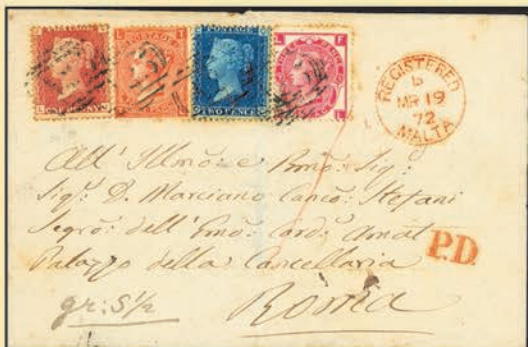 REGISTERED
b
MR 19
72
MALTA
TWO PENCE
All' Illmo: e Rmo: Sig:
Sigr: D. Marciano Canco: Stefani
Segro: dell' Emo: Card: Amat
Palazzo della Cancellaria
P.D.
gr: 5 1/2
Roma